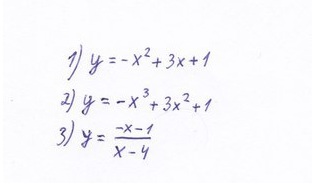 1) y = -x² + 3x + 1
2) y = -x³ + 3x² + 1
3) y = (-x-1)/(x-4)